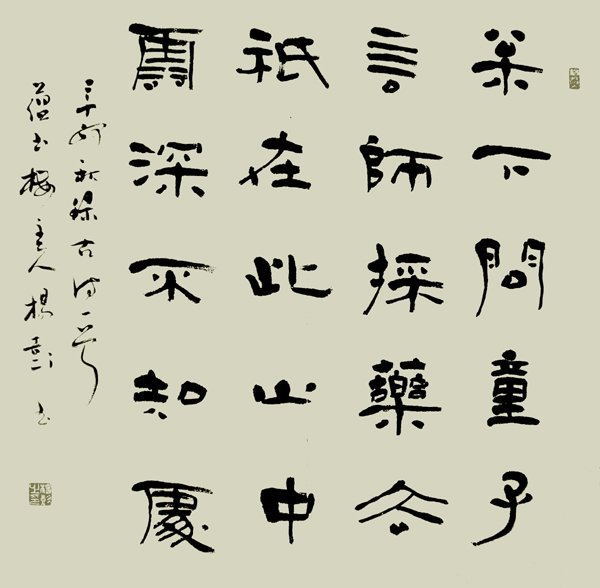 枀下問童子
言師採藥去
祇在此山中
雲深不知處
辛卯秋錄古詩一首
樓主人楊彭書